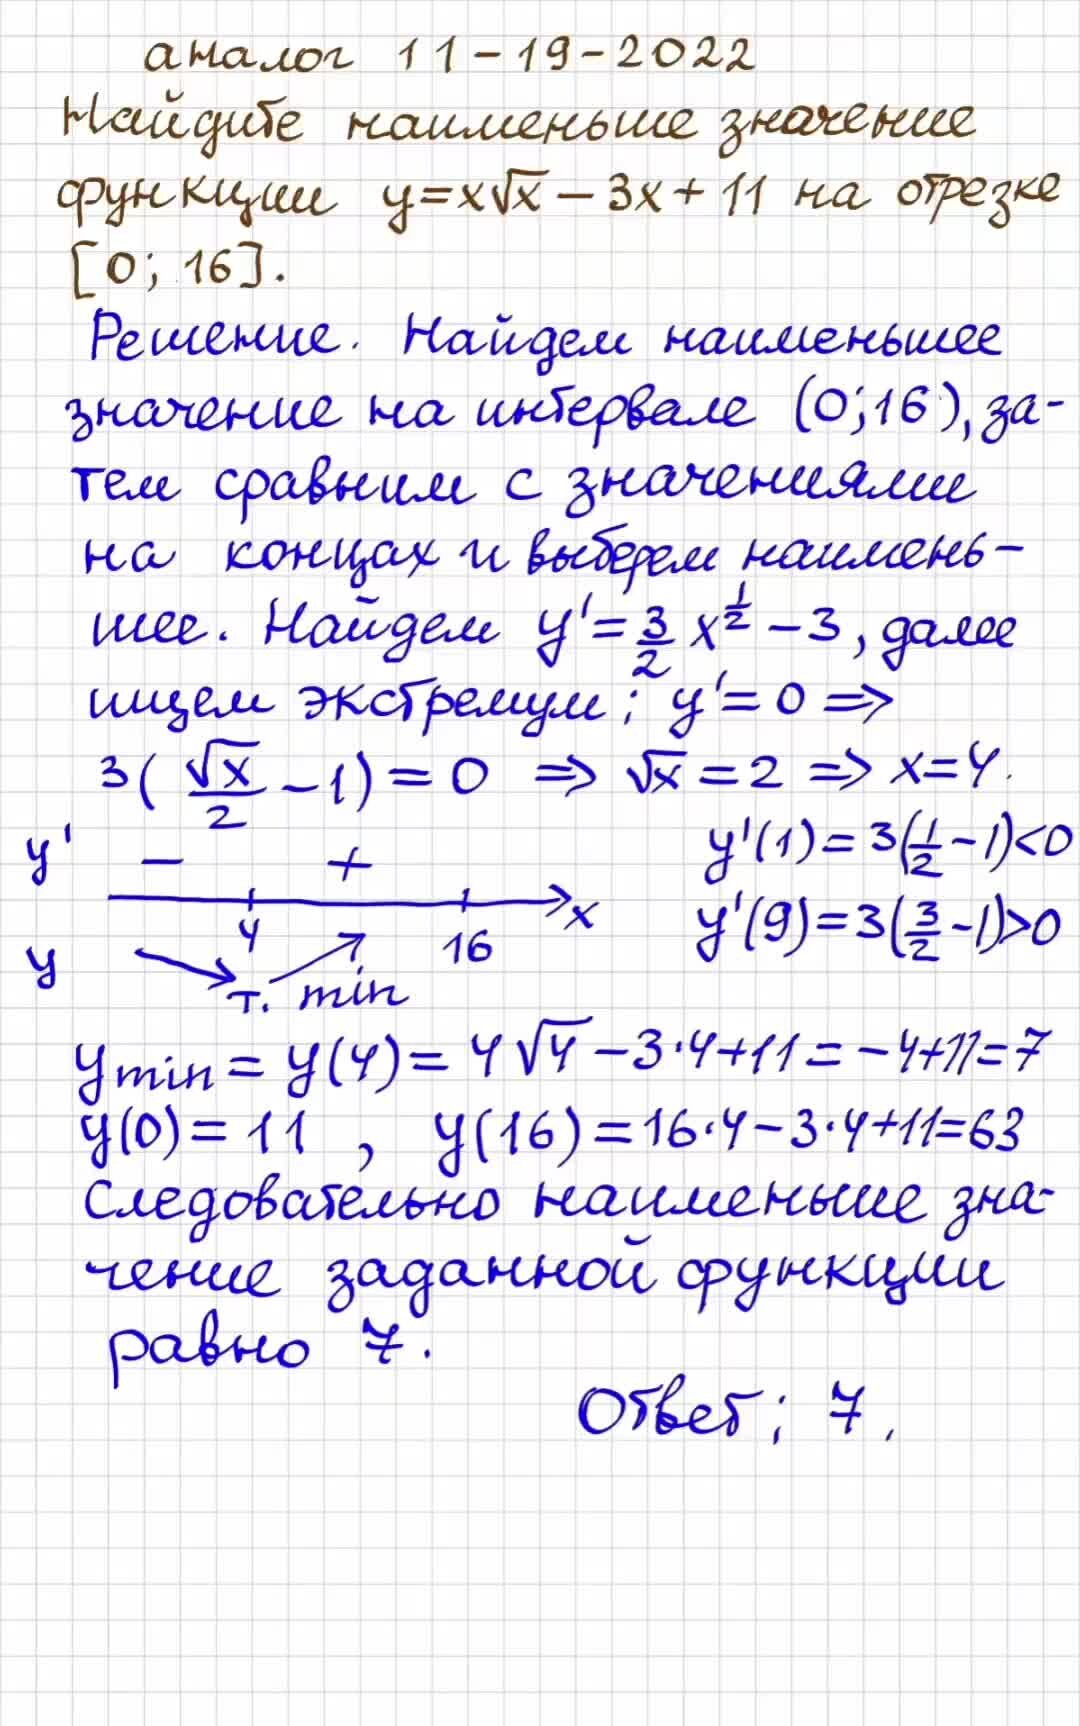 аналог 11-19-2022
Найдите наименьше значение
функции y=x√x-3x+11 на отрезке
[0; 16].
Решение. Найдем наименьшее
значение на интервале (0;16), за-
тем сравним с значениями
на концах и выберем наимень-
шее. Найдем y'=3/2 x^(1/2)-3, далее
ищем экстремум; y'=0 ⇒
3(√x/2-1)=0 ⇒ √x=2 ⇒ x=4.
y' - + y'(1)=3(1/2-1)<0
4 16 x y'(9)=3(3/2-1)>0
y т. min
y min=y(4)=4√4-3·4+11=-4+11=7
y(0)=11, y(16)=16·4-3·4+11=63
Следовательно наименьше зна-
чение заданной функции
равно 7.
Ответ; 7.